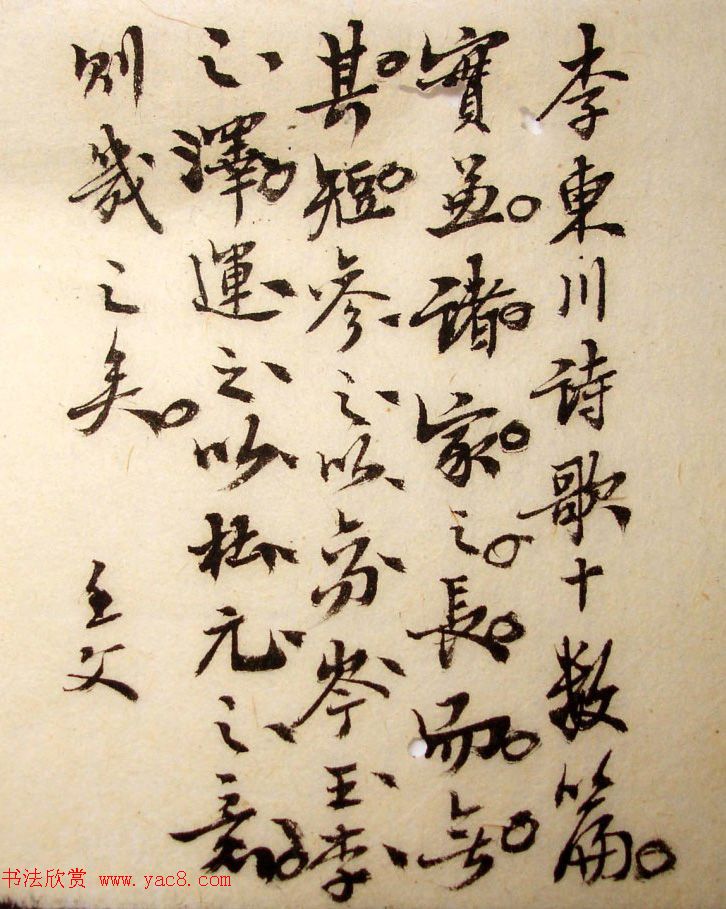 李東川詩歌十數篇
實兼諸家之長而無
其短參之以高岑王李
之澤運之以杜元之意
則幾之矣
壬父
书法欣赏 www.yac8.com